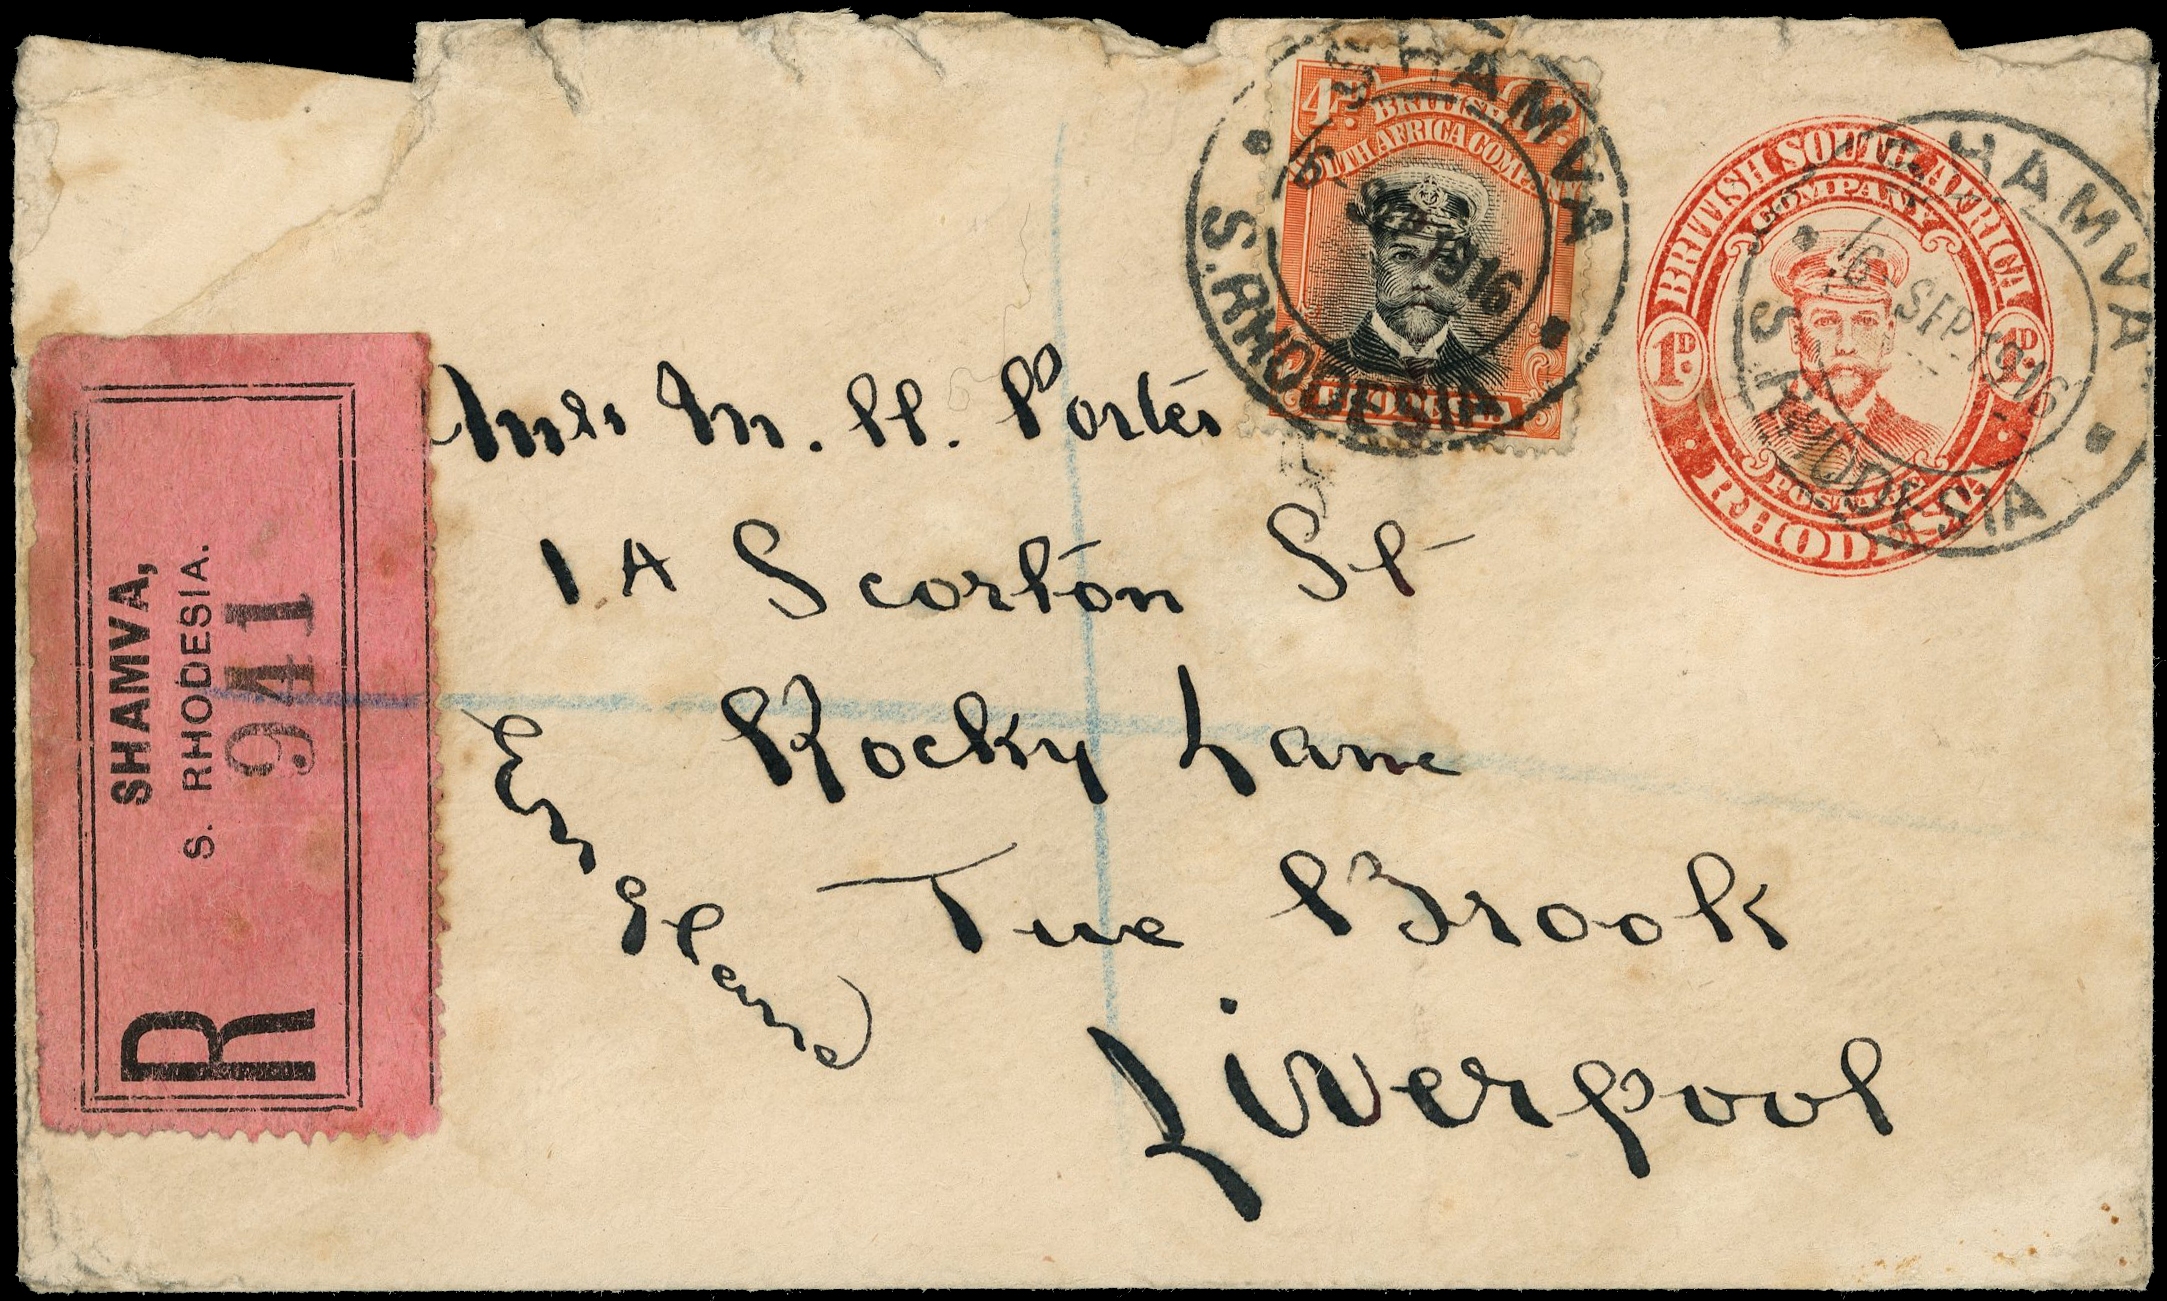 4D.
BRITISH
SOUTH AFRICA COMPANY
RHODESIA
SHAMVA
16 SEP 1916
S. RHODESIA
BRITISH SOUTH AFRICA
COMPANY
1D.
1D.
POSTAGE
RHODESIA
SHAMVA
16 SEP 1916
S. RHODESIA
SHAMVA,
S. RHODESIA.
941
R
Miss M. H. Porter
1A Scorton St
Rocky Lane
Tue Brook
Liverpool
England